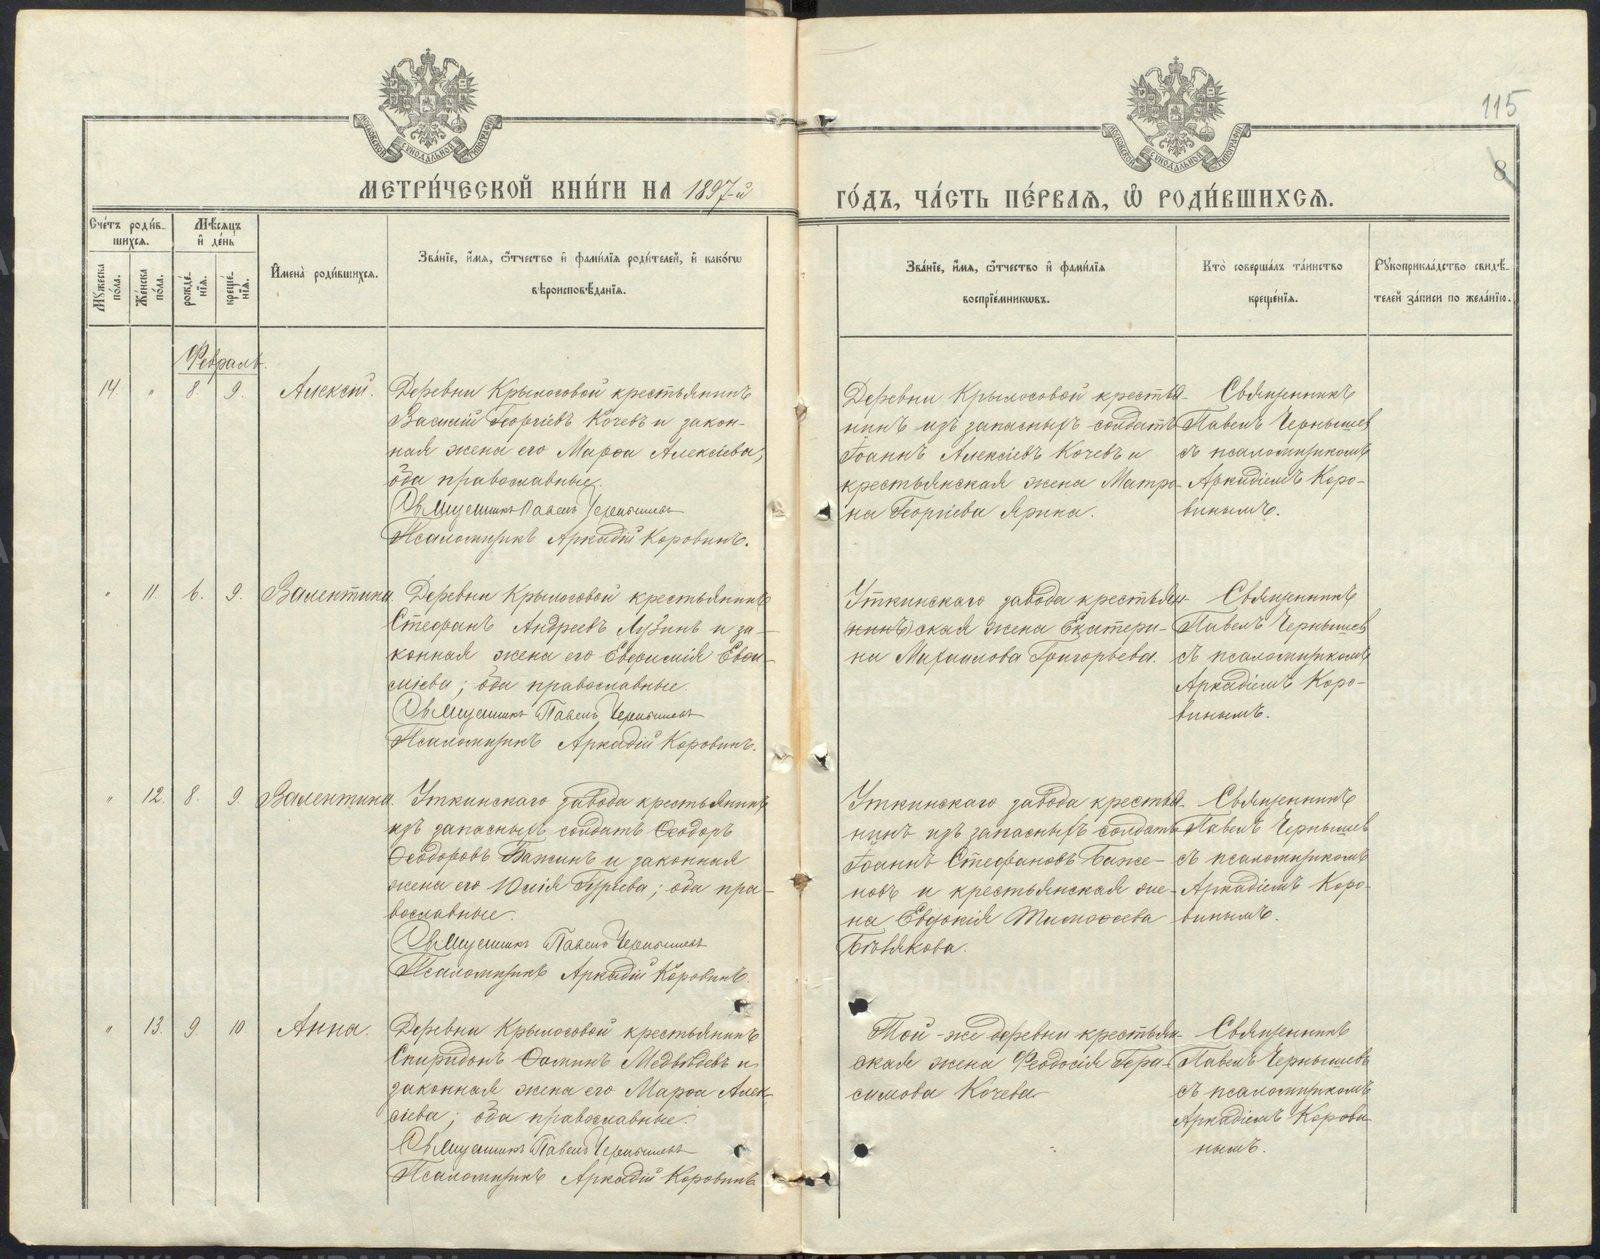 115
8
МЕТРИ́ЧЕСКОЙ КНИ́ГИ НА 1897-й ГО́ДЪ, ЧА́СТЬ ПЕ́РВАЯ, Ѡ РОДИ́ВШИХСЯ.
Сче́тъ роди́в-
шихся.
Мꙋ́жеска по́ла.
Же́нска по́ла.
Мѣ́сяцъ
и де́нь
рожде́-
нїя.
креще́-
нїя.
Имена̀ роди́вшихся.
Зва́нїе, и́мя, ѻ́тчество и фами́лїя роди́телей, и како́гѡ
вѣроисповѣ́данїя.
Зва́нїе, и́мя, ѻ́тчество и фами́лїя
воспрїе́мникѡвъ.
Кто̀ соверша́лъ та́инство
креще́нїя.
Рꙋкоприкла́дство свидѣ́-
телей за́писи по жела́нїю.
Февраль.
14. " 8. 9. Алексѣй.
Деревни Крылосовой крестьянинъ
Василій Георгіевъ Кочевъ и закон-
ная жена его Марѳа Алексіева,
оба православные.
Священникъ Павелъ Чернышевъ
Псаломщикъ Аркадій Коровинъ.
Деревни Крылосовой крестья-
нинъ изъ запасныхъ солдатъ
Іоаннъ Алексіевъ Кочевъ и
крестьянская жена Матро-
на Георгіева Ярина.
Священникъ
Павелъ Чернышев
съ псаломщикомъ
Аркадіемъ Коро-
винымъ.
" 11. 6. 9. Валентина
Деревни Крылосовой крестьянинъ
Стефанъ Андреевъ Лузинъ и за-
конная жена его Евфимія Евфи-
міева; оба православные.
Священникъ Павелъ Чернышевъ
Псаломщикъ Аркадій Коровинъ.
Уткинскаго завода крестьян-
нинъ) ская жена Екатери-
на Михаилова Григорьева.
Священникъ
Павелъ Чернышев
съ псаломщикомъ
Аркадіемъ Коро-
винымъ.
" 12. 8. 9. Валентина.
Уткинскаго завода крестьянинъ
изъ запасныхъ солдатъ Ѳеодоръ
Ѳеодоровъ Бажинъ и законная
жена его Юлія Гуріева; оба пра-
вославные.
Священникъ Павелъ Чернышевъ
Псаломщикъ Аркадій Коровинъ.
Уткинскаго завода крестья-
нинъ изъ запасныхъ солдатъ
Іоаннъ Стефановъ Баже-
новъ и крестьянская же-
на Евдокія Тимоѳеева
Бѣвякова.
Священникъ
Павелъ Чернышев
съ псаломщикомъ
Аркадіемъ Коро-
винымъ.
" 13. 9 10 Анна.
Деревни Крылосовой крестьянинъ
Спиридонъ Ѳоминъ Медвѣдевъ и
законная жена его Марѳа Алек-
сіева; оба православные.
Священникъ Павелъ Чернышевъ
Псаломщикъ Аркадій Коровинъ
Той-же деревни крестьян-
ская жена Феодосія Гера-
симова Кочева
Священникъ
Павелъ Чернышевъ
съ псаломщикомъ
Аркадіемъ Корови-
нымъ.